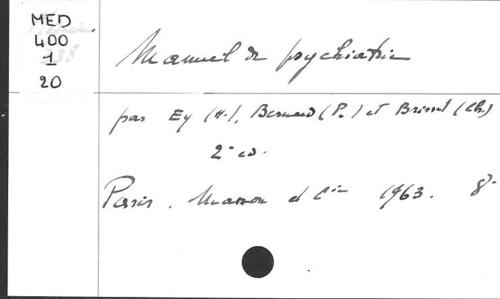 MED
400
1
20
Manuel de psychiatrie
par Ey (H.), Bernard (P.) et Brisset (Ch.)
2e ed.
Paris. Masson et Cie 1963. 8°